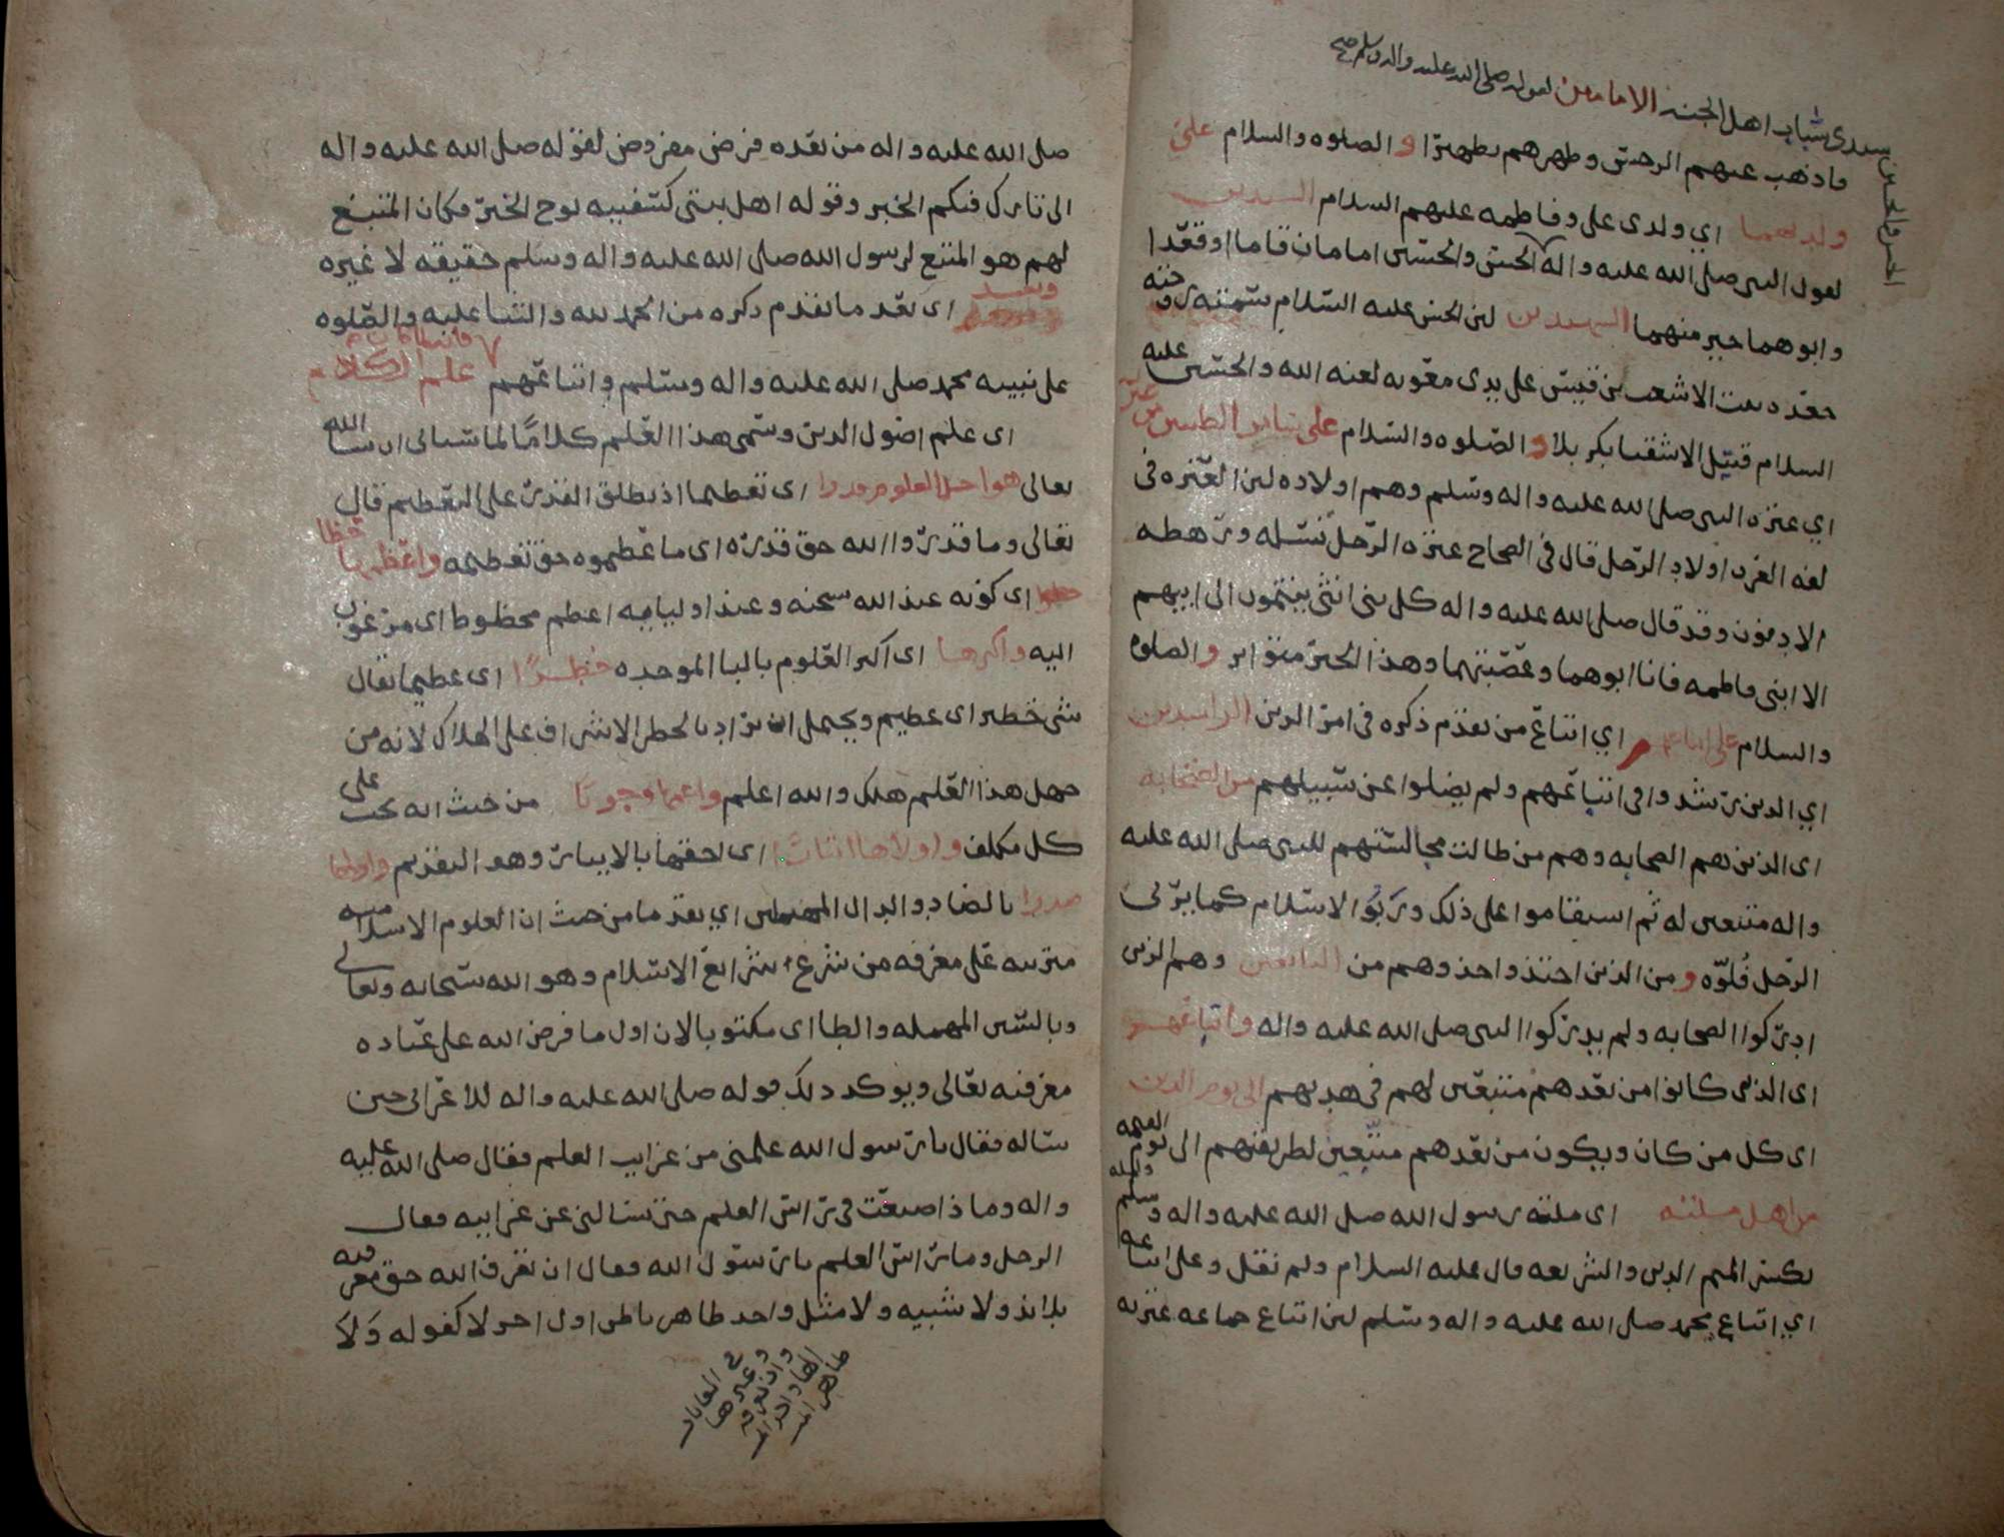 سيدي شباب اهل الجنه الامامين لقوله صلى الله عليه واله وسلم صح
الحسن والحسين
فاذهب عنهم الرجس وطهرهم تطهيرا و الصلوه والسلام على
ولديهما اي ولدي علي وفاطمه عليهم السلام السيدين
لقول النبي صلى الله عليه واله الحسن والحسين امامان قاما او قعدا
وابوهما خير منهما الشهيدين لان الحسن عليه السلام سمته زوجته
جعده بنت الاشعث بن قيس على يدي معويه لعنه الله والحسين عليه
السلام قتيل الاشقيا بكربلا و الصلوه والسلام على سائر الطيبين من عترته
اي عتره النبي صلى الله عليه واله وسلم وهم اولاده لان العتره في
لغه العرب اولاد الرجل قال في الصحاح عتره الرجل نسله ورهطه
الادنون وقد قال صلى الله عليه واله كل بني انثى ينتمون الى ابيهم
الا ابني فاطمه فانا ابوهما وعصبتهما وهذا الخبر متواتر و الصلوه
والسلام على اتباعهم اي اتباع من تقدم ذكره في امر الدين الراشدين
اي الذين رشدوا في اتباعهم ولم يضلوا عن سبيلهم من الصحابه
اي الذين هم الصحابه وهم من طالت مجالستهم للنبي صلى الله عليه
واله متبعين له ثم استقاموا على ذلك وربوا الاسلام كما يربي
الرجل فلوه و من الذين اخذ واحذوهم من التابعين وهم الذين
ادركوا الصحابه ولم يدركوا النبي صلى الله عليه واله واتباعهم
اي الذين كانوا من بعدهم متبعين لهم في هديهم الى يوم الدين
اي كل من كان ويكون من بعدهم متبعين لطريقتهم الى يوم القيمه
من اهل ملته اي مله رسول الله صلى الله عليه واله وسلم والمله
بكسر الميم الدين والشريعه قال عليه السلام ولم نقل وعلى اتباعه
اي اتباع محمد صلى الله عليه واله وسلم لان اتباع جماعه عترته
صلى الله عليه واله من بعده فرض مفروض لقوله صلى الله عليه واله
اني تارك فيكم الخبر وقوله اهل بيتي كسفينه نوح الخبر فكان المتبع
لهم هو المتبع لرسول الله صلى الله عليه واله وسلم حقيقه لا غيره
وبعد اي بعد ما تقدم ذكره من الحمد لله والثنا عليه والصلوه
على نبيه محمد صلى الله عليه واله وسلم واتباعهم فانه لما كان علم الكلام
اي علم اصول الدين وسمي هذا العلم كلامًا لما سياتي ان شا الله
تعالى هو اجل العلوم قدرا اي تعظيما اذ يطلق القدر على التعظيم قال
تعالى وما قدروا الله حق قدره اي ما عظموه حق تعظيمه واعظمها حظا
اي كونه عند الله سبحنه وعند اوليايه اعظم محظوظ اي مرغوب
اليه واكبرها اي اكبر العلوم بالبا الموحده خطرًا اي عظيما يقال
شي خطير اي عظيم ويحتمل ان يراد بالخطر الاشراف على الهلاك لانه من
جهل هذا العلم هلك والله اعلم واعمها وجوبا من حيث انه يجب على
كل مكلف واولاها ايثارًا اي احقها بالايثار وهو التقديم واولها
صدرا بالصاد والدال المهملتين اي تقدما من حيث ان العلوم الاسلاميه
مترتبه على معرفه من شرع شرائع الاسلام وهو الله سبحانه وتعالى
وبالسين المهمله والطا اي مكتوبا لان اول ما فرض الله على عباده
معرفته تعالى ويؤكد ذلك قوله صلى الله عليه واله للاعرابي حين
ساله فقال يا رسول الله علمني من غرايب العلم فقال صلى الله عليه
واله وما ذا صنعت في راس العلم حتى تسالني عن غرايبه فقال
الرجل وما راس العلم يا رسول الله فقال ان تعرف الله حق معرفته
بلا ند ولا شبيه ولا مثل واحد ظاهر باطن اول اخر لا كفو له ولا